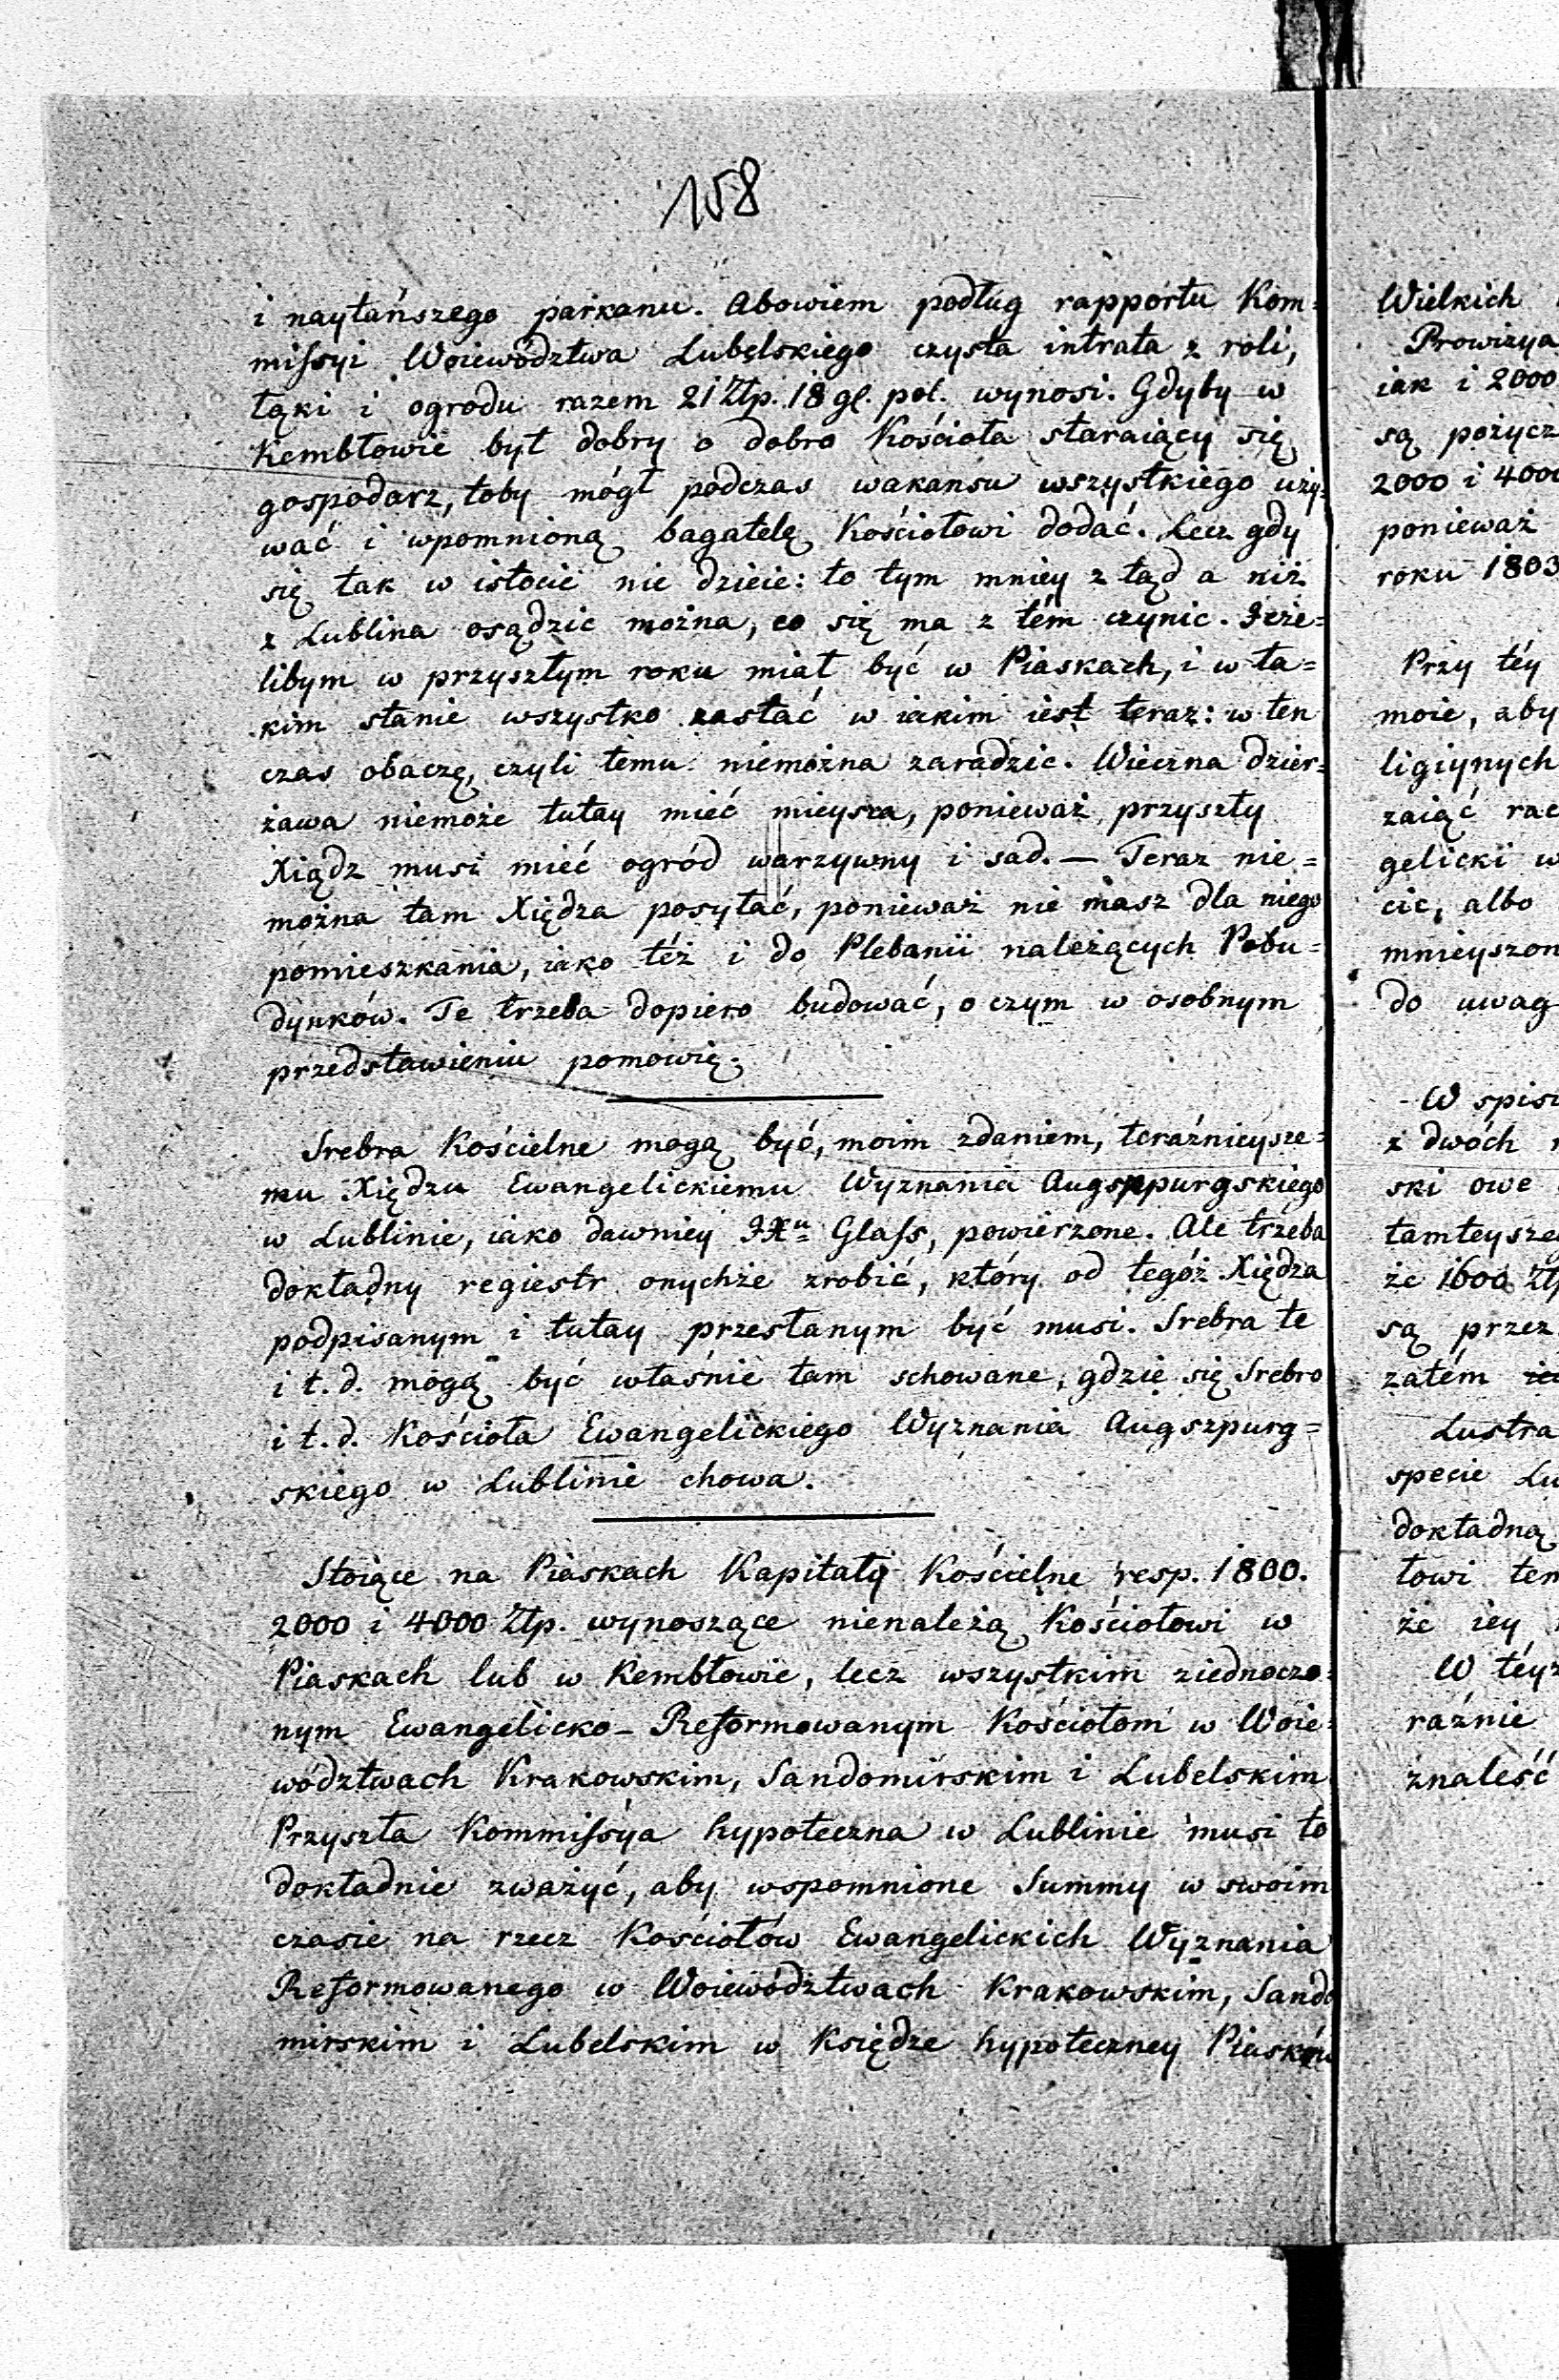 158
i naytańszego parkanu. Abowiem podług rapportu Kom=
missyi Woiewództwa Lubelskiego czysta intrata z roli,
łąki i ogrodu razem 21 Złp. 18 gl. pol. wynosi. Gdyby w
Kembłowie był dobry o dobro Kościoła staraiący się
gospodarz, toby mógł podczas wakansu wszystkiego uży=
wać i wpomnioną bagatelę Kościołowi dodać. Lecz gdy
się tak w istocie nie dzieie: to tym mniey z tąd a niż
z Lublina osądzic można, co się ma z tém czynic. Ieże=
libym w przyszłym roku miał być w Piaskach, i w ta=
kim stanie wszystko zastać w iakim iest teraz: w ten
czas obaczę, czyli temu niemożna zaradzic. Wieczna dzier=
żawa niemoże tutay mieć mieysca, ponieważ przyszły
Xiądz musi mieć ogród warzywny i sad. — Teraz nie=
można tam Xiędza posyłać, ponieważ nie masz dla niego
pomieszkania, iako téż i do Plebanii należących Pobu=
dynków. Te trzeba dopiero budować, o czym w osobnym
przedstawieniu pomowię.
Srebra Kościelne mogą być, moim zdaniem, teraźnieysze=
mu Xiędzu Ewangelickiemu Wyznania Augszpurgskiego
w Lublinie, iako dawniey JXu Glass, powierzone. Ale trzeba
dokładny regiestr onychże zrobić, który od tegóż Xiędza
podpisanym i tutay przesłanym być musi. Srebra te
i t. d. mogą być właśnie tam schowane, gdzie się Srebro
i t. d. Kościoła Ewangelickiego Wyznania Augszpurg=
skiego w Lublinie chowa.
Stoiące na Piaskach Kapitały Kościelne resp. 1800.
2000 i 4000 Złp. wynoszące nienależą Kościołowi w
Piaskach lub w Kembłowie, lecz wszystkim ziednoczo=
nym Ewangelicko-Reformowanym Kościołom w Woie=
wództwach Krakowskim, Sandomirskim i Lubelskim
Przyszła Kommissya hypoteczna w Lublinie musi to
dokładnie zważyć, aby wspomnione Summy w swoim
czasie na rzecz Kościołów Ewangelickich Wyznania
Reformowanego w Woiewództwach Krakowskim, Sando
mirskim i Lubelskim w Księdze hypoteczney Piasków
Wielkich
Prowizya
iak i 2000
są pożycz
2000 i 4000
ponieważ
roku 1803
Przy téy
moie, aby
ligiynych
zaiąć rac
gelicki w
cie, albo
mnieyszon
do uwag
W spisi
z dwóch
ski owe
tamteysze
że 1600 Zł
są przez
zatém
Lustra
specie Lu
dokładną
łowi tem
że iey
W téyz
raźnie
znaleść